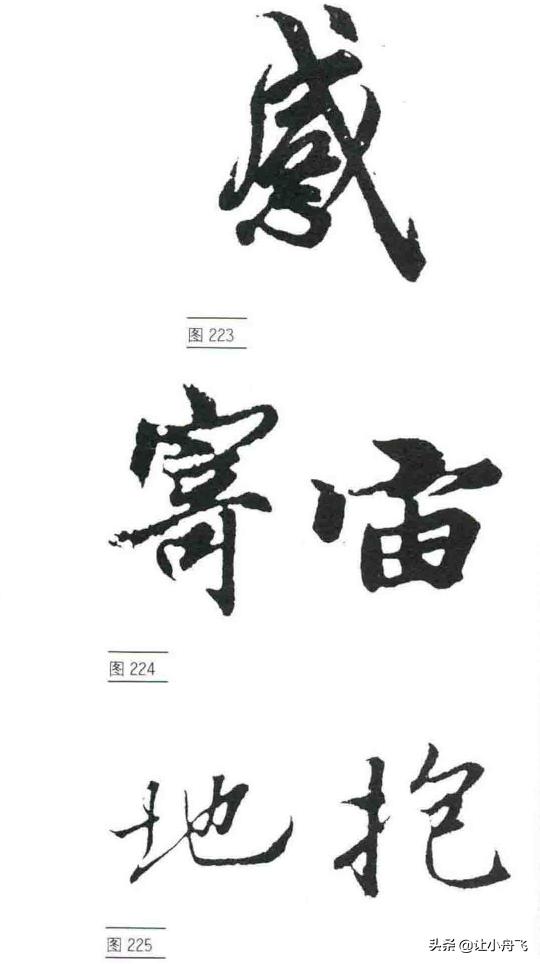 感
图 223
寄宙
图 224
地抱
图 225
头条 @让小舟飞